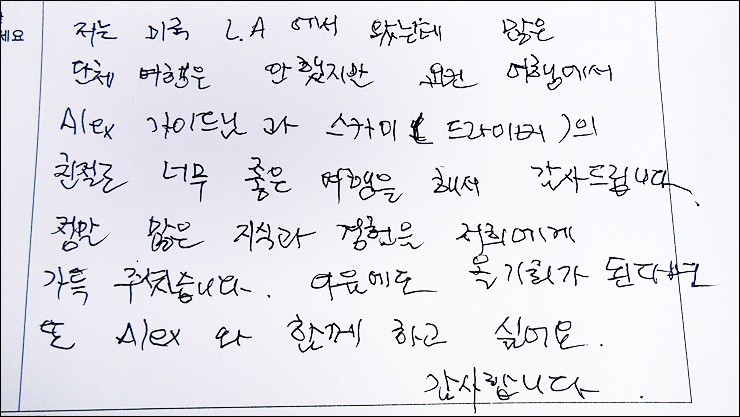 세요
저는 미국 L.A 에서 왔는데 많은
단체 여행은 안했지만 요번 여행에서
Alex 가이드님과 스카이 (드라이버)의
친절로 너무 좋은 여행을 해서 감사드립니다.
정말 많은 지식과 경험을 저희에게
가득 주셨습니다. 다음에도 올기회가 된다면
또 Alex 와 함께 하고 싶어요.
감사합니다.